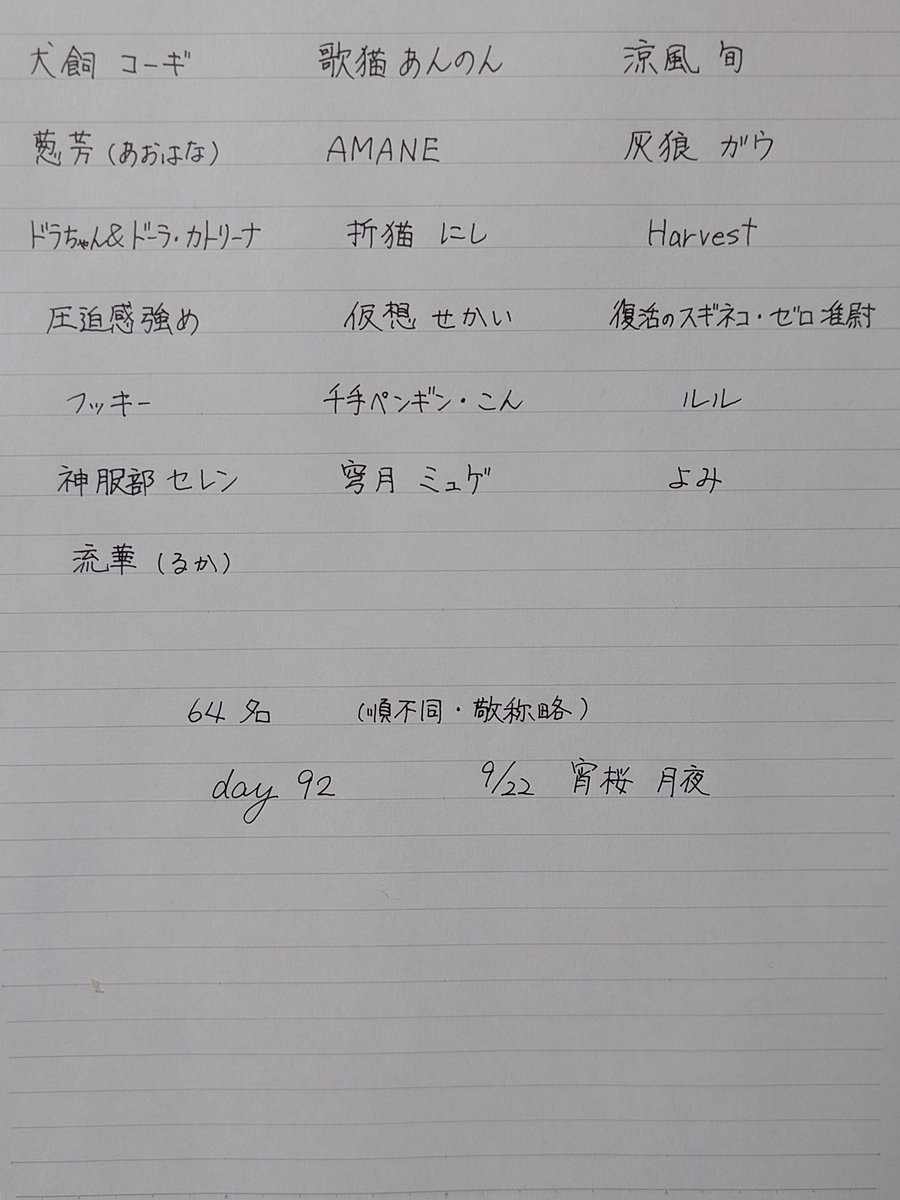 犬飼 コーギ 歌猫あんのん 涼風 旬
葱芳(あおはな) AMANE 灰狼 ガウ
ドラちゃん&ドーラ・カトリーナ 折猫 にし Harvest
圧迫感強め 仮想 せかい 復活のスギネコ・ゼロ准尉
フッキー 千手ペンギン・こん ルル
神服部 セレン 穹月 ミュゲ よみ
流華(るか)
64名 (順不同・敬称略)
day 92 9/22 宵桜 月夜